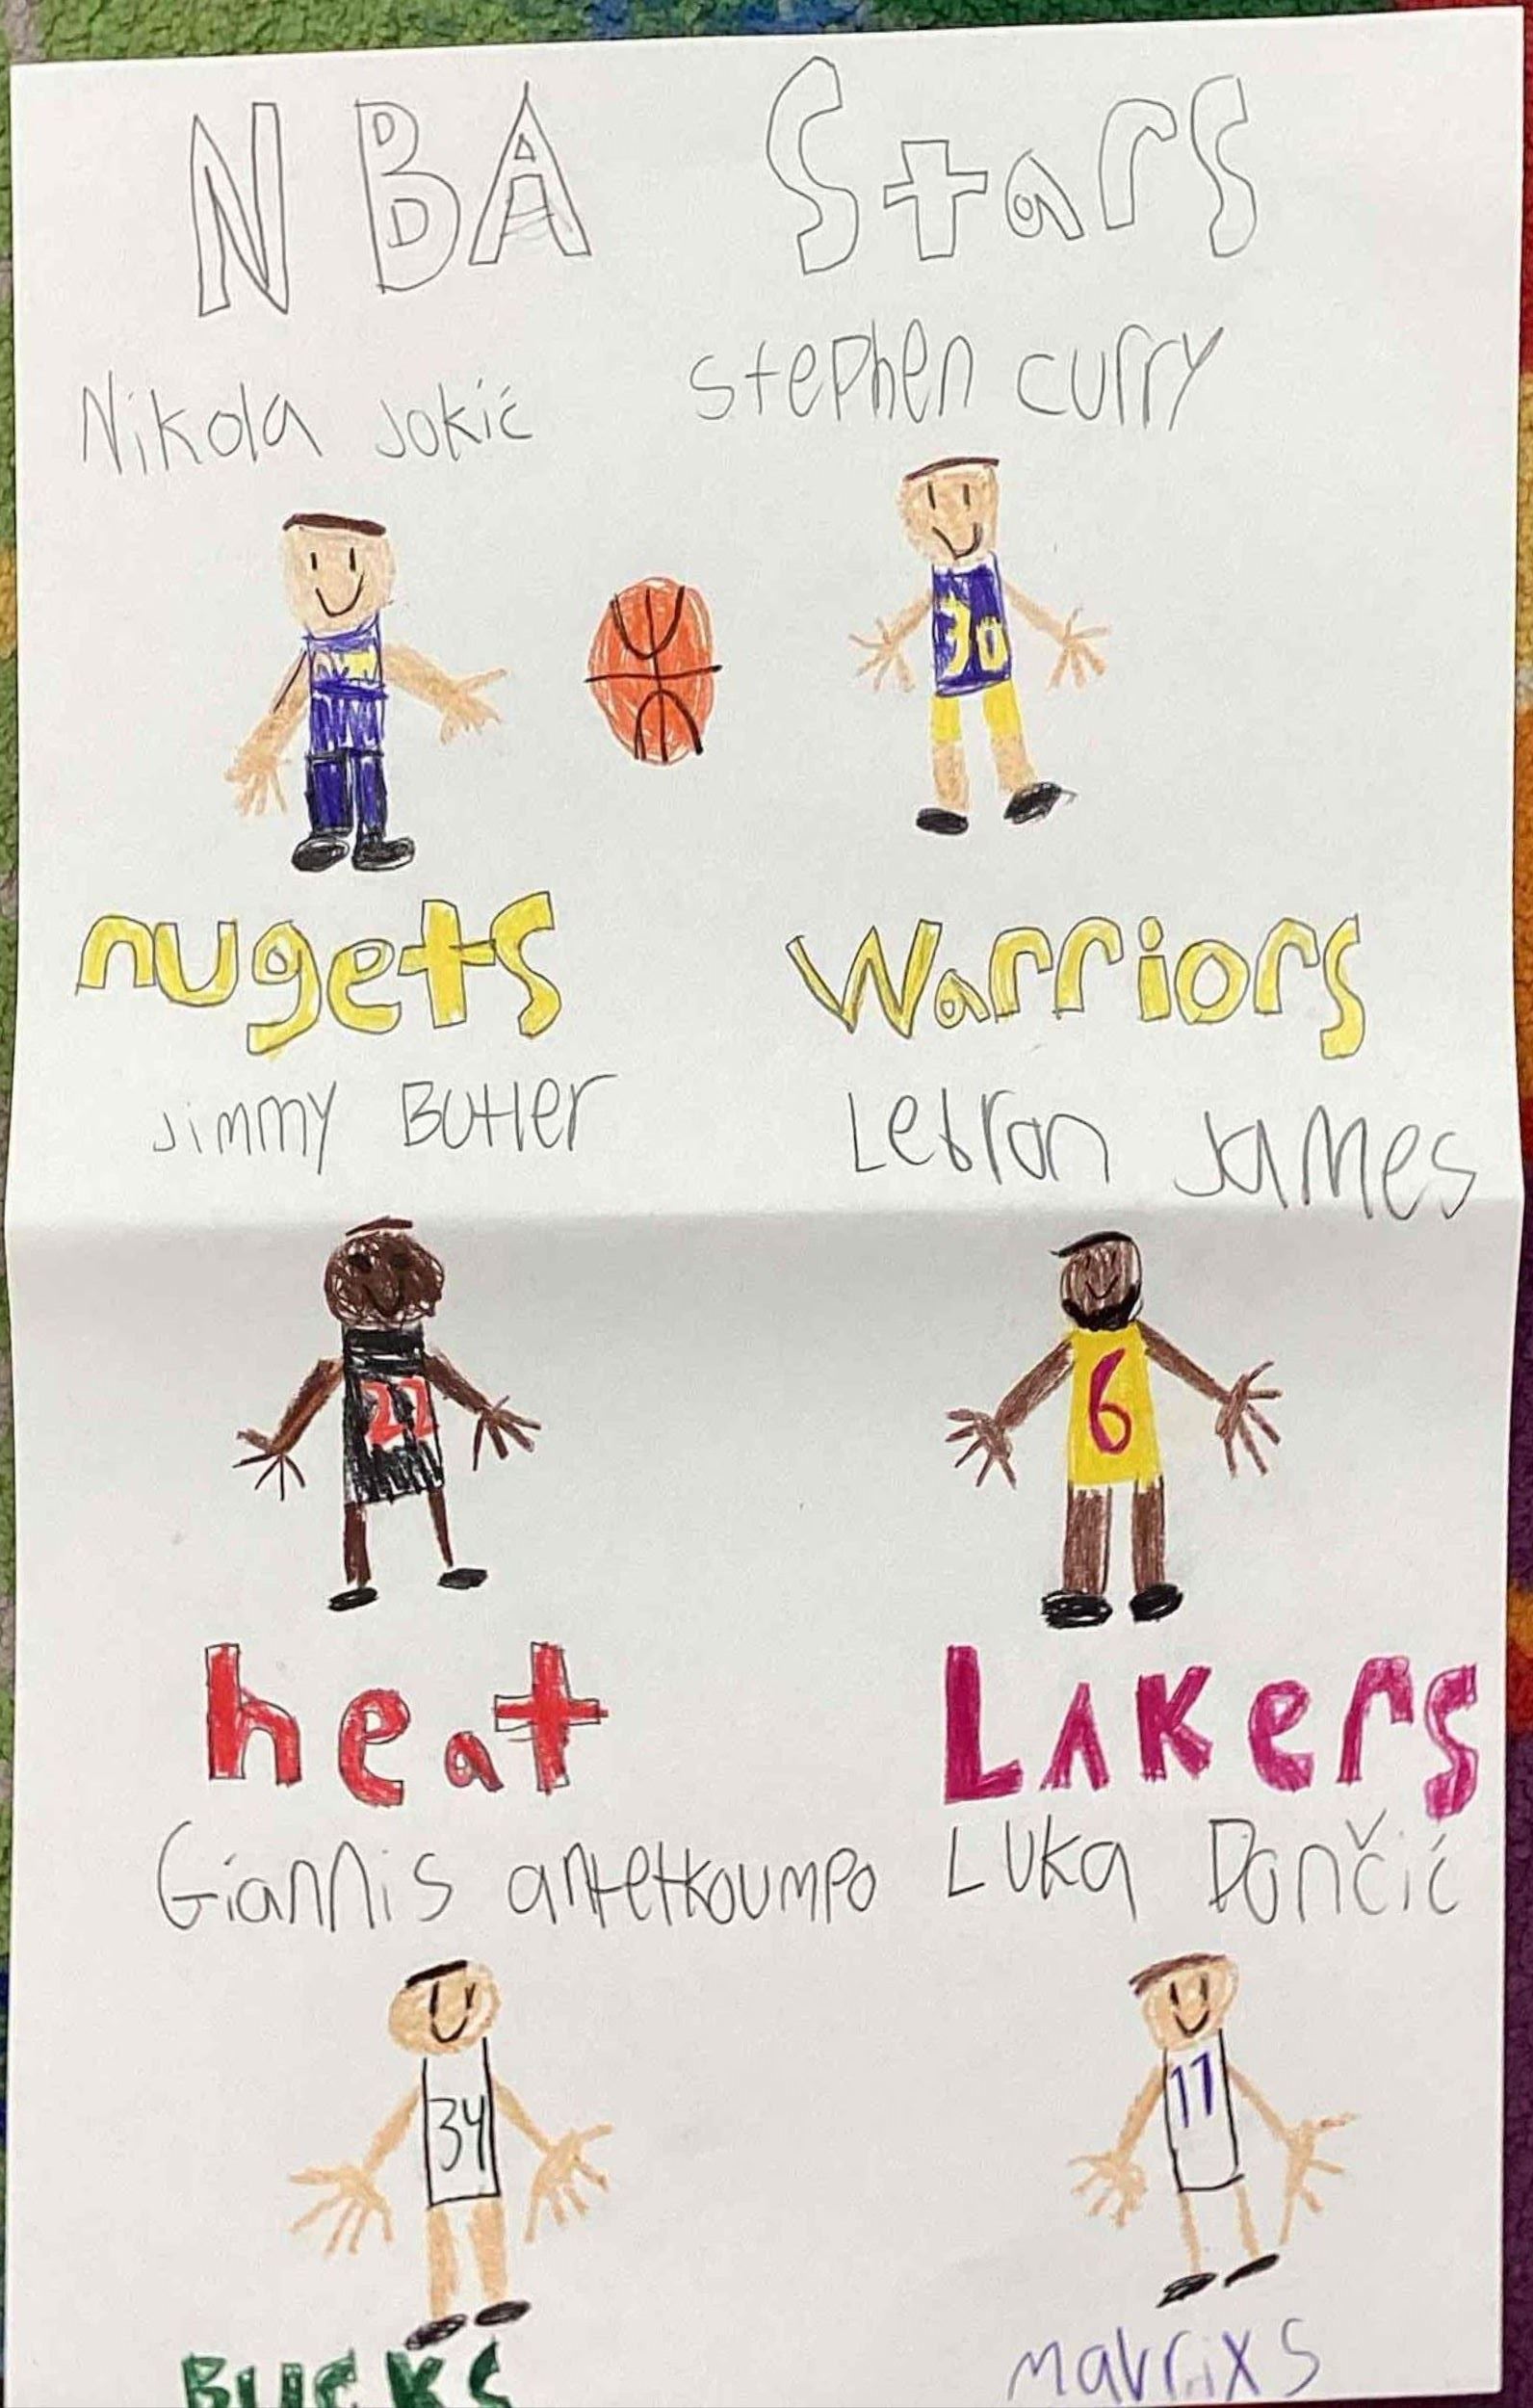 NBA Stars
Nikola Jokić Stephen curry
30
nugets Warriors
Jimmy Butler Lebron James
22 6
heat LAKers
Giannis antetkoumpo Luka Dončić
34 11
BUCKS mavrixs